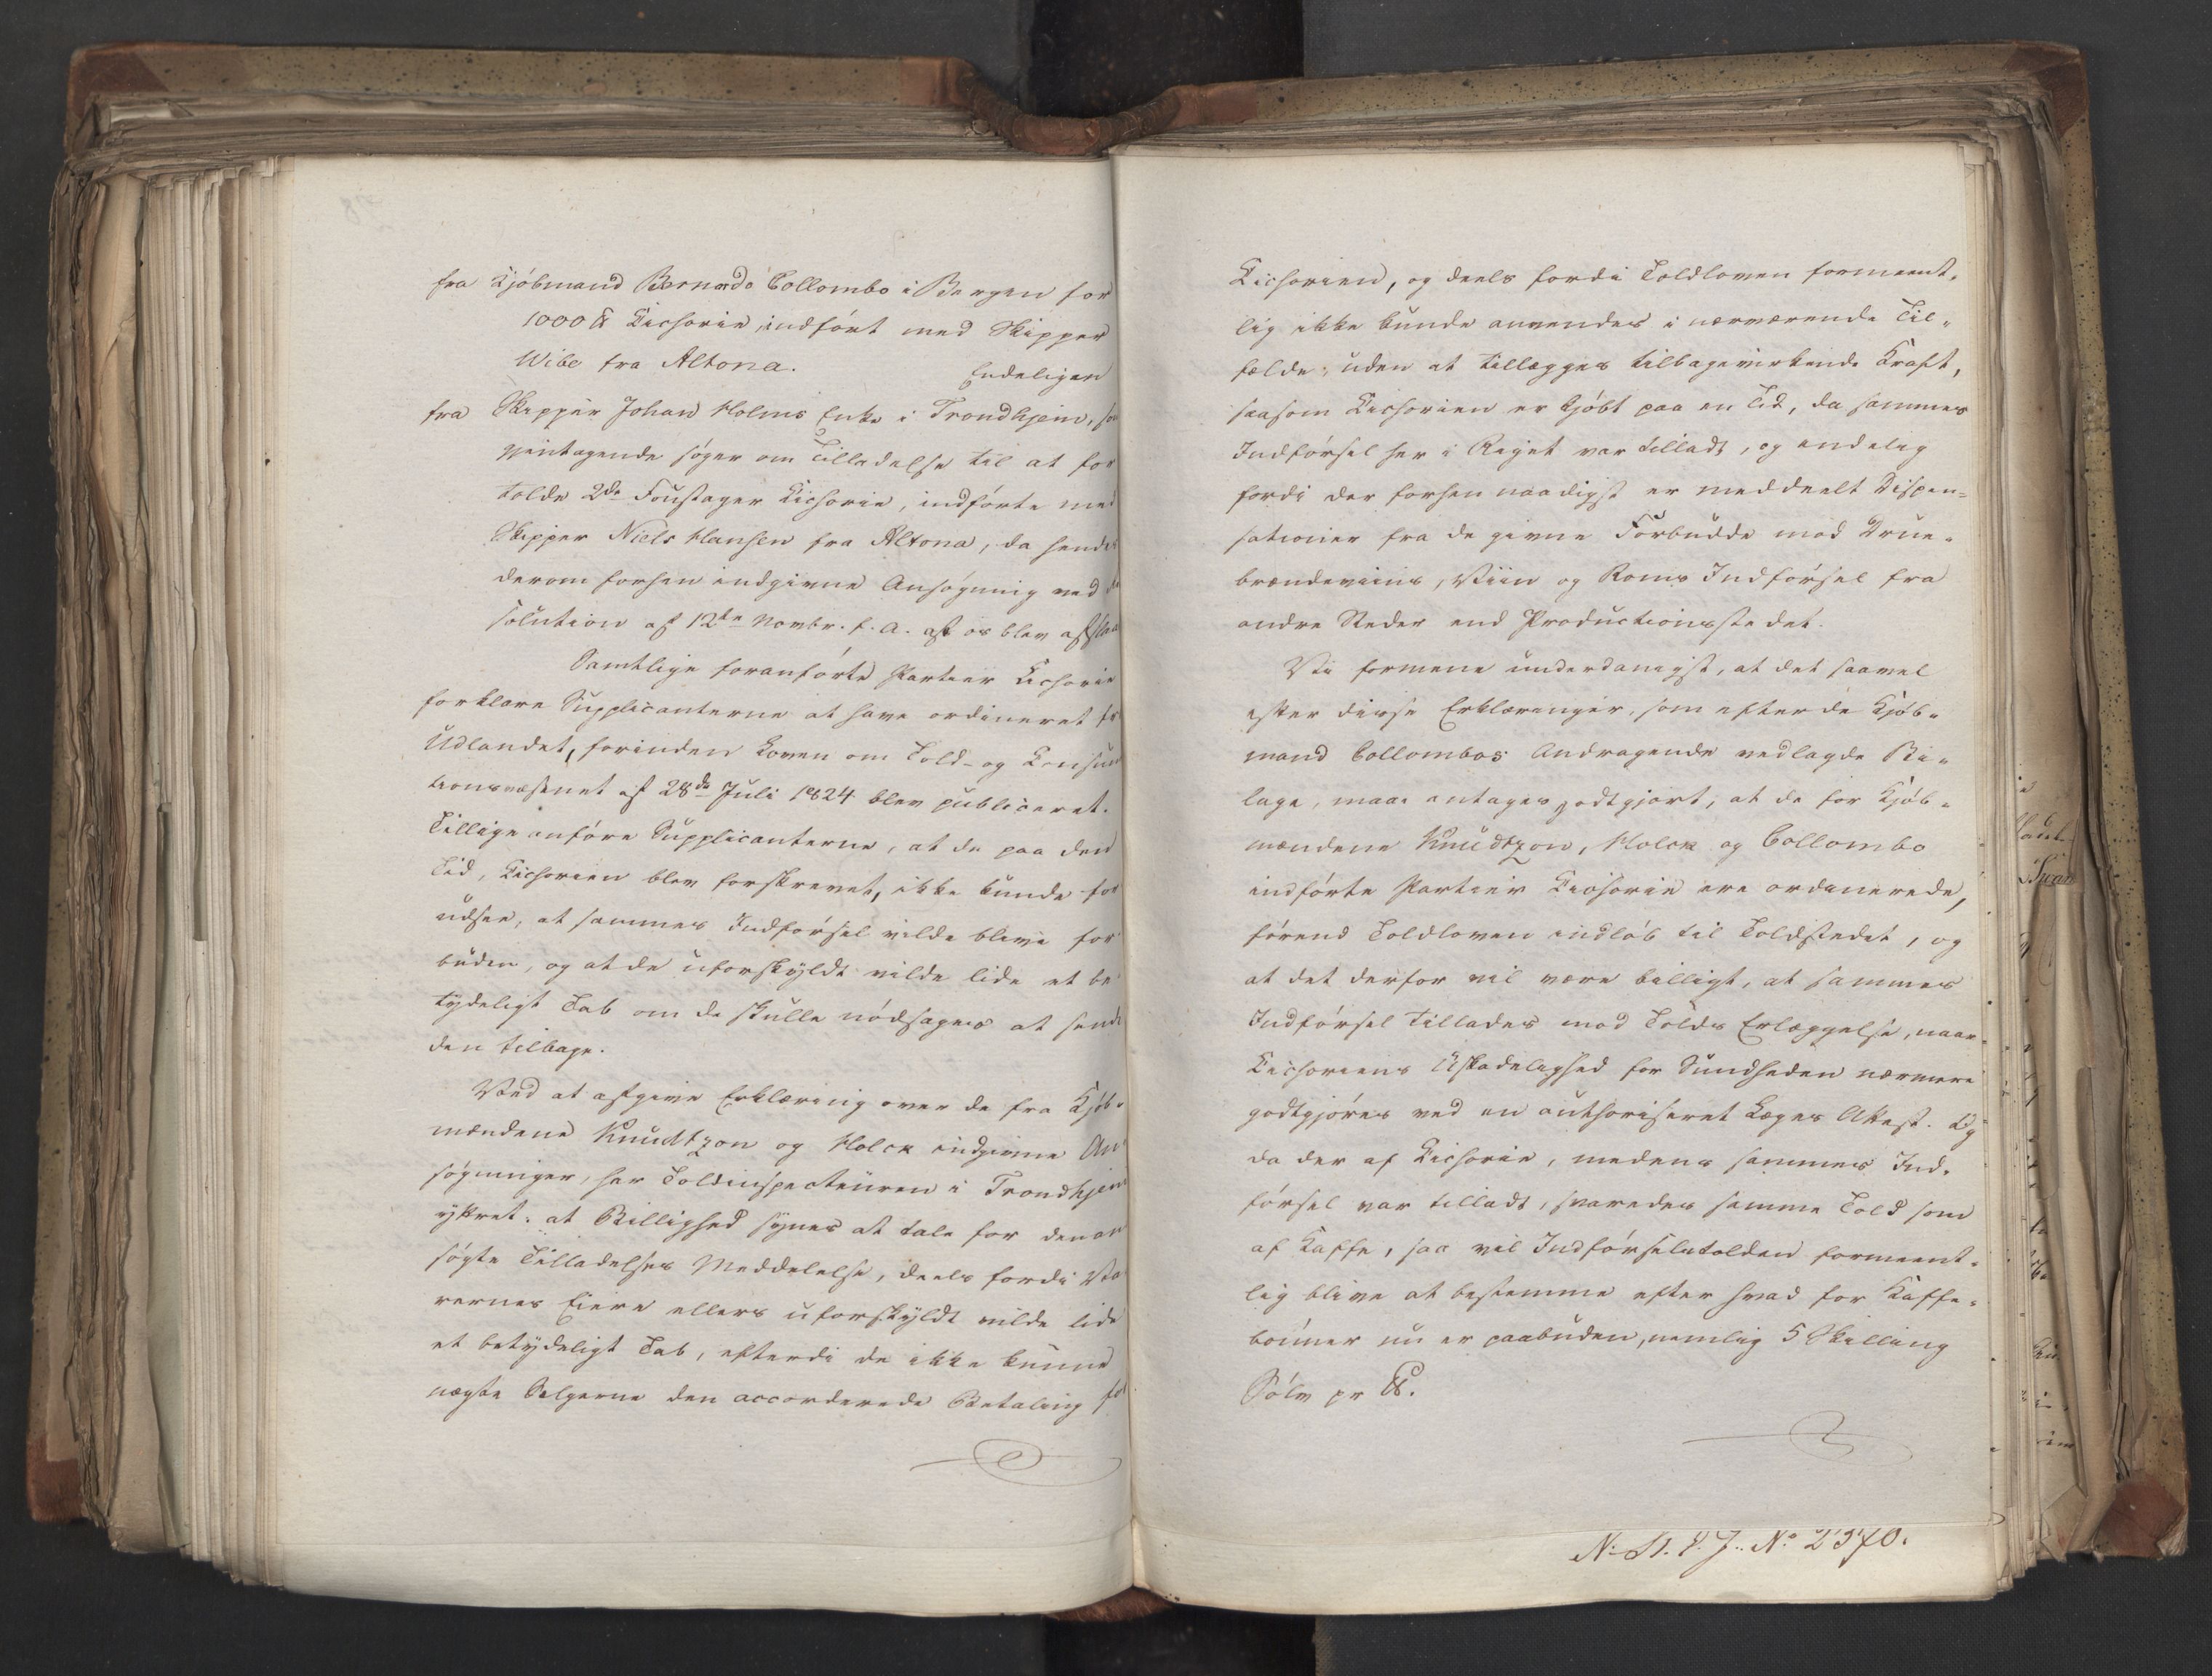 fra Kjöbmand Bernardo Collombo i Bergen for
1000 ℔ Cichorie, indfört med Skipper
Wibe fra Altona. Endeligen
fra Skipper Johan Holms Enke i Trondhjem, som
gjentagende söger om Tilladelse til at for
tolde 2de Foustager Cichorie, indförte med
Skipper Niels Hansen fra Altona, da hendes
derom forhen indgivne Ansögning ved Re
solution af 12te Novbr. f. A. af os blev afslaaet
Samtlige foranförte Partier Cichorie
forklare Supplicanterne at have ordineret fra
Udlandet, forinden Loven om Told- og Consum
tionsvæsenet af 28de Juli 1824 blev publiceret.
Tillige anföre Supplicanterne, at de paa den
Tid, Cichorien blev forskrevet, ikke kunde for
udsee, at sammes Indförsel vilde blive for
buden, og at de uforskyldt vilde lide et be
tydeligt Tab om de skulle nödsages at sende
den tilbage.
Ved at afgive Erklæring over de fra Kjöb-
mændene Knudtzon og Holck indgivne An
sögninger, har Toldinspecteuren i Trondhjem
yttret: at Billighed synes at tale for den an
sögte Tilladelses Meddelelse, deels fordi Va
rernes Eiere ellers uforskyldt vilde lide
et betydeligt Tab, efterdi de ikke kunne
nægte Sælgerne den accorderede Betaling for
Cichorien, og deels fordi Toldloven formeent-
lig ikke kunde anvendes i nærværende Til-
fælde, uden at tillægges tilbagevirkende Kraft,
saasom Cichorien er kjöbt paa en Tid, da sammes
Indförsel her i Riget var tilladt, og endelig
fordi der forhen naadigst er meddeelt Dispen-
sationer fra de givne Forbudde mod Drue-
brændeviins, Viin og Roms Indförsel fra
andre Steder end Productionsstedet.
Vi formene underdanigst, at det saavel
efter disse Erklæringer, som efter de Kjöb-
mand Collombos Andragende vedlagde Bi-
lage, maae antages godtgjort, at de for Kjöb-
mændene Knudtzon, Holck og Collombo
indförte Partier Cichorie ere ordinerede,
förend Toldloven indlöb til Toldstedet, og
at det derfor vil være billigt, at sammes
Indförsel tillades mod Tolds Erlæggelse, naar
Cichoriens Uskadelighed for Sundheden nærmere
godtgjöres ved en authoriseret Læges Attest. Og
da der af Cichorie, medens sammes Ind-
försel var tilladt, svaredes samme Told som
af Kaffe, saa vil Indförselstolden formeent-
lig blive at bestemme efter hvad for Kaffe-
bönner nu er paabuden, nemlig 5 Skilling
Sölv pr ℔.
N: St. P. J. No 2370.